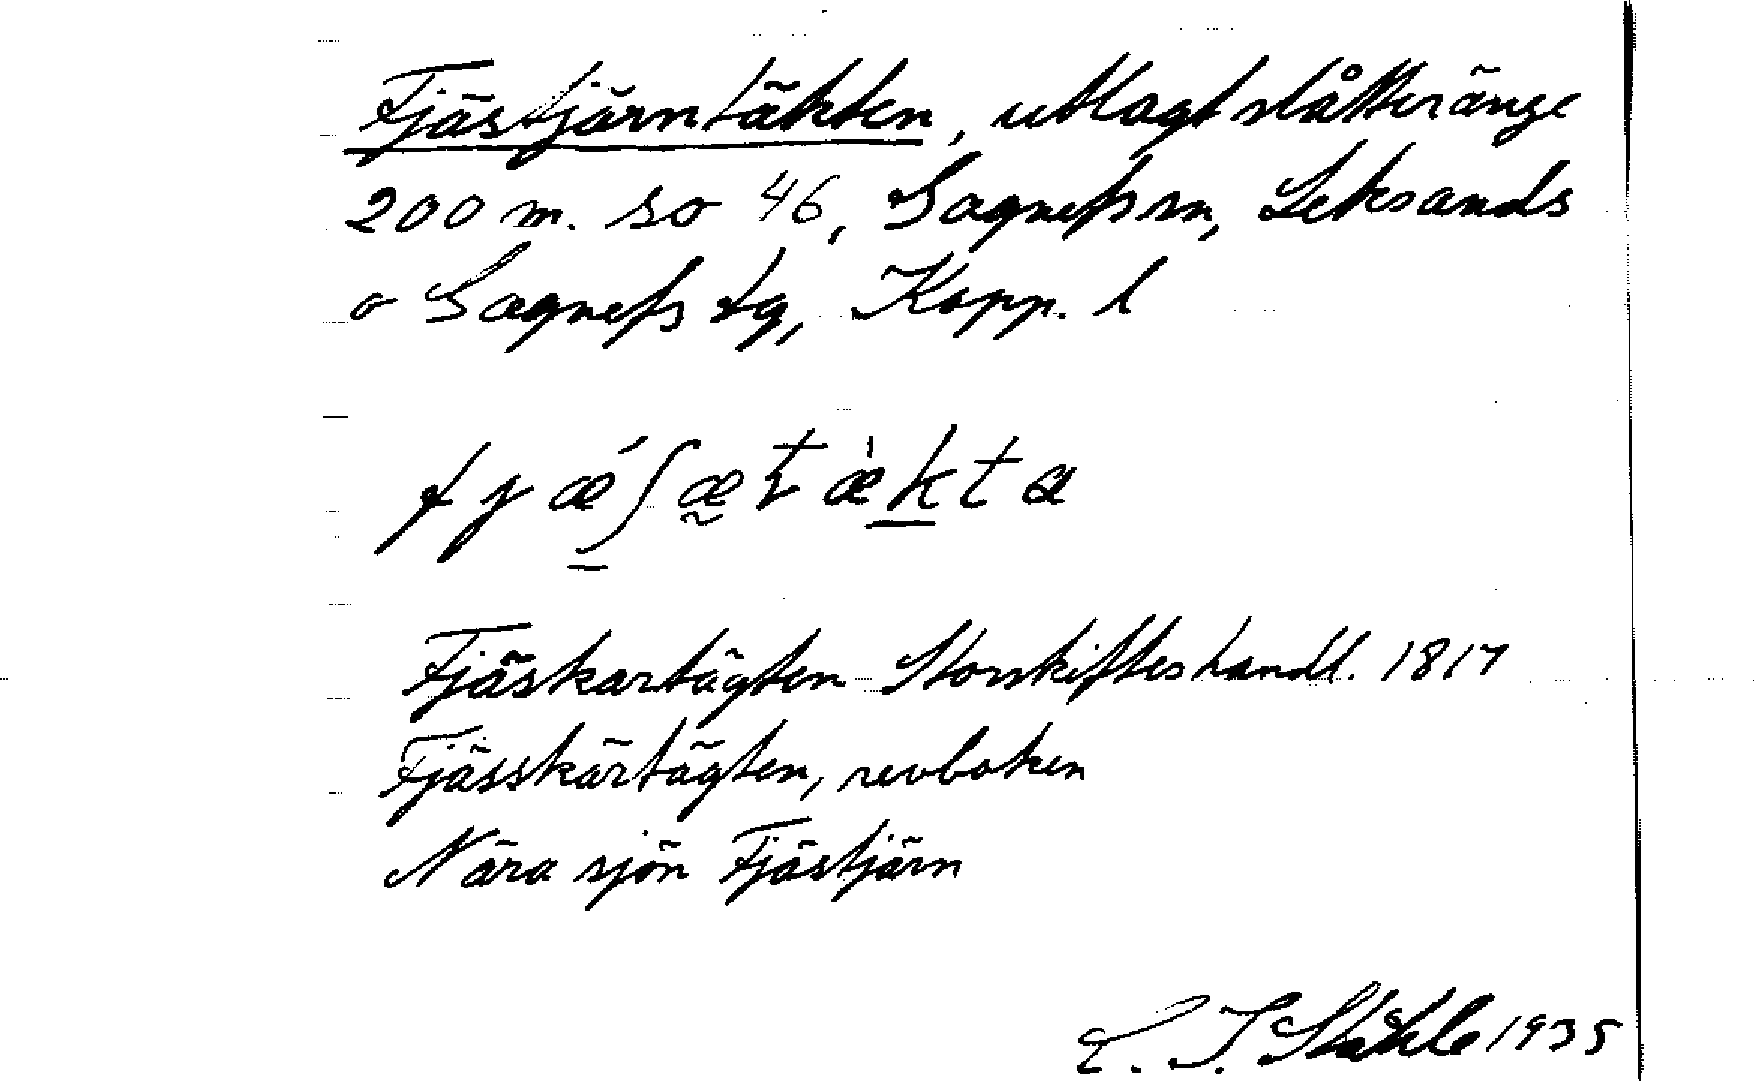 Fjästjärntäkten, utlagt slåtteränge
200 m. so 46, Gagnefs sn, Leksands
o Gagnefs tg, Kopp. l
fjǽʃæ̰tæ̀kta
Fjäskartägten Storskifteshandl. 1817
Fjässkärtägten, revboken
Nära sjön Fjästjärn
C. I. Ståhle 1935